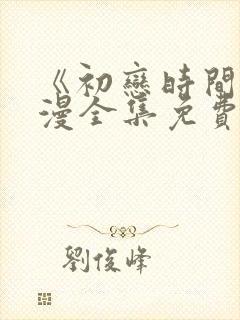 《初戀時間
漫全集免費
劉俊峰